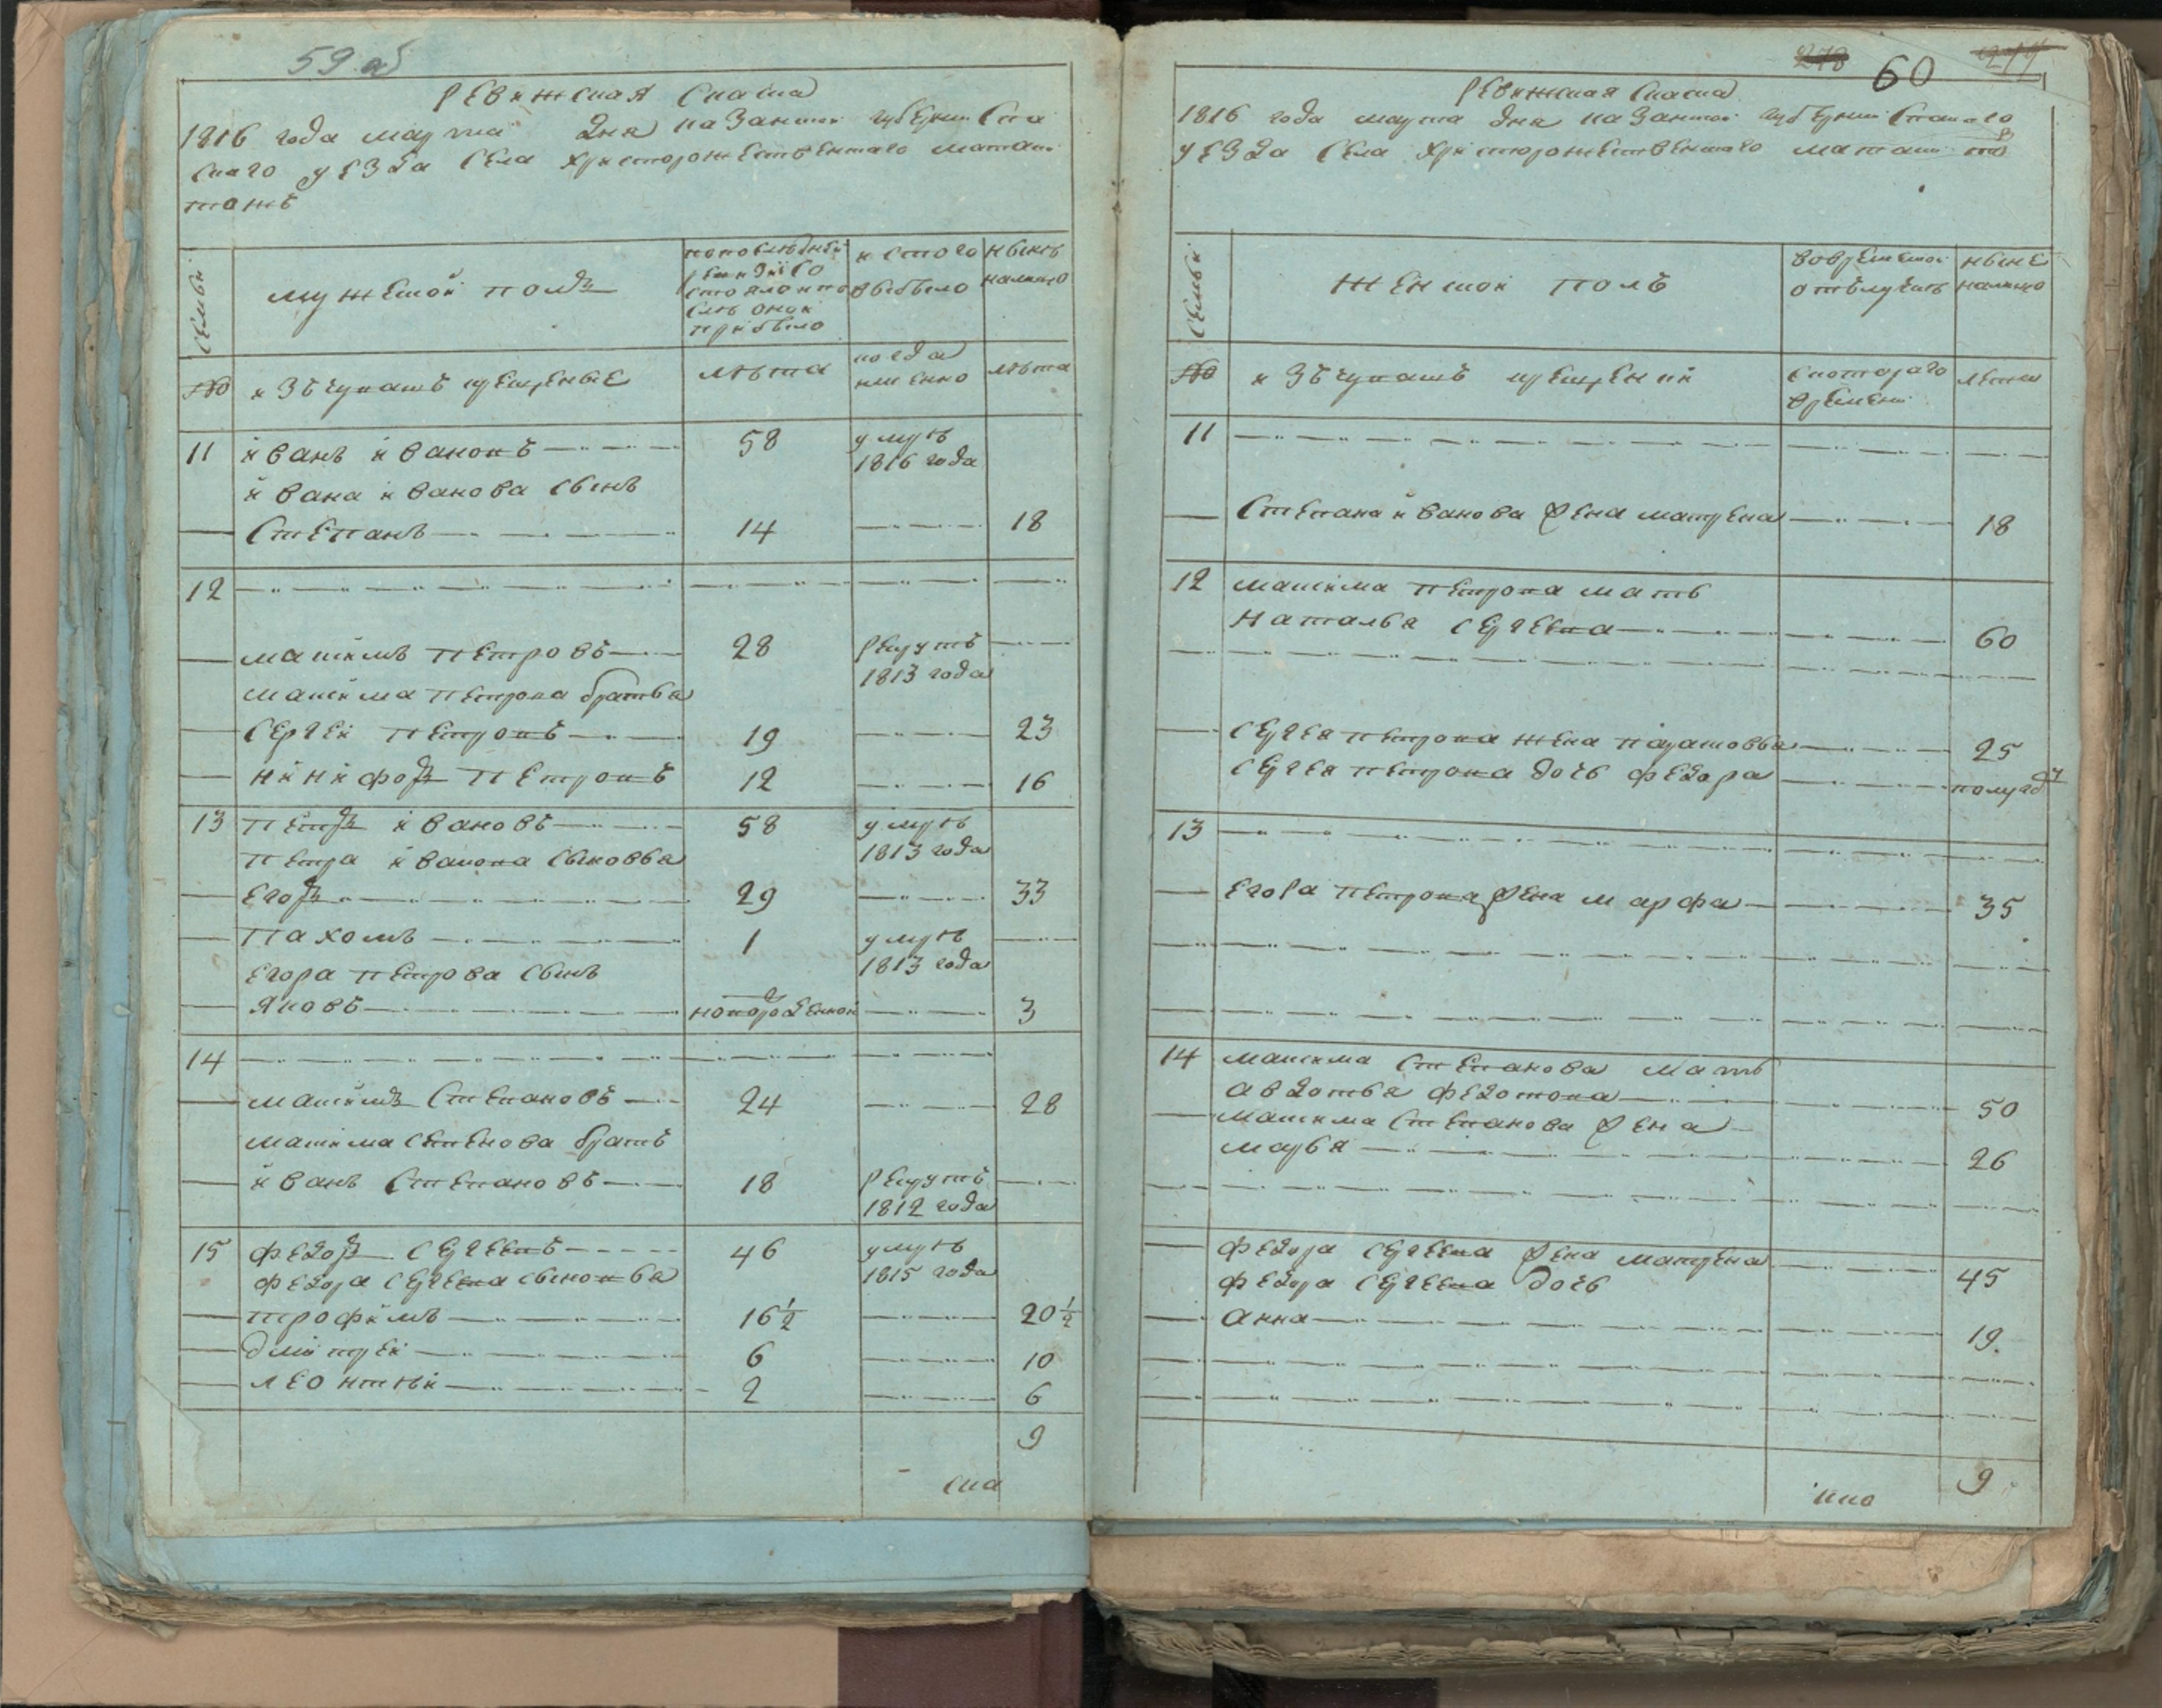 59 об
Ревижская скаска
1816 года марта дня казанской губернии спа
скаго уезда села христорожественнаго маташ
тожъ
семьи
мужеской полъ
попоследней
ревизiи со
стояло и по
сле оной
прибыло
и стого
выбыло
ныне
налицо
№
изъ чувашъ крещеные
лета
когда
имянно
лета
11 иванъ ивановъ 58 умре
1816 года
ивана иванова сынъ
Степанъ 14 18
12
максимъ петровъ 28 рекрутъ
1813 года
максима петрова братья
сергеи петровъ 19 23
никифоръ петровъ 12 16
13 петръ ивановъ 58 умре
1813 года
петра иванова сыновья
егоръ 29 33
пахомъ 1 умре
1813 года
егора петрова сынъ
яковъ новорожденной 3
14
максимъ степановъ 24 28
максима степенова братъ
иванъ степановъ 18 рекрутъ
1812 года
15 федоръ сергеевъ 46 умре
1815 года
федора сергеева сыновья
трофимъ 16 1/2 20 1/2
дмитреи 6 10
леонтеи 2 6
9
ска
278 60
Ревижская скаска
1816 года марта дня казанской губернии спаскаго
уезда села христорожественнаго маташ то
семьи
женской полъ
вовременной
отълучке
ныне
налицо
№
изъ чувашъ крещении
скотораго
времени
лета
11
Степана иванова жена матрена 18
12 максима петрова мать
наталья сергеева 60
сергея петрова жена парасковья 25
сергея петрова дочь федора полугоду
13
егора петрова жена марфа 35
14 максима степанова мать
авдотья федотова 50
максима степанова жена
марья 26
федора сергеева жена матрена 45
федора сергеева дочь
анна 19
9